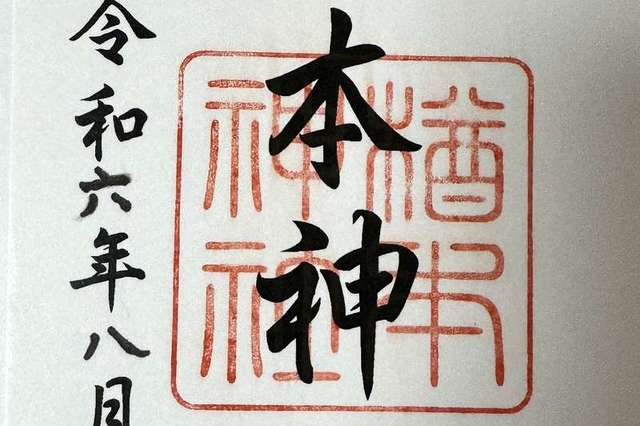 楢本
神社
本神
令和六年八月